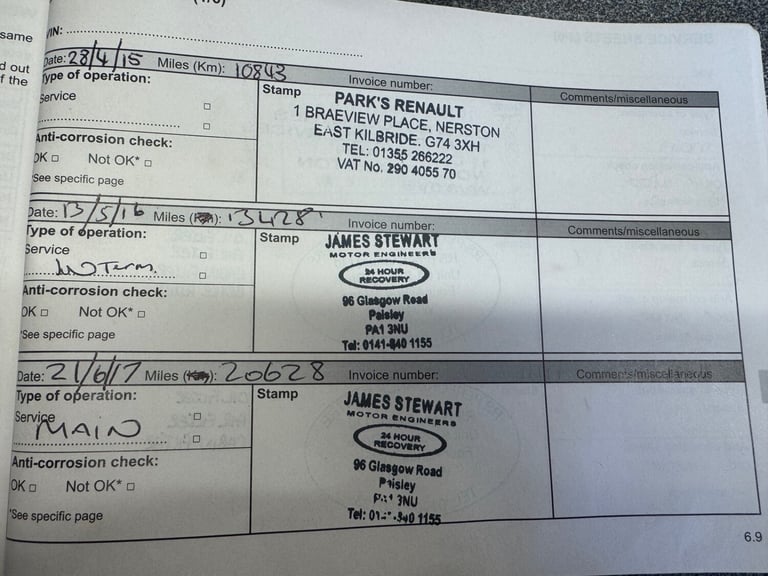 same
d out
f the
VIN:
Date: 28/4/15 Miles (Km): 10843 Invoice number:
Type of operation:
Stamp
Comments/miscellaneous
Service
Anti-corrosion check:
OK Not OK*
*See specific page
PARK'S RENAULT
1 BRAEVIEW PLACE, NERSTON
EAST KILBRIDE. G74 3XH
TEL: 01355 266222
VAT No. 290 4055 70
Date: 13/5/16 Miles (Km): 13428 Invoice number:
Type of operation:
Stamp
Comments/miscellaneous
Service
INTerm.
Anti-corrosion check:
OK Not OK*
*See specific page
JAMES STEWART
MOTOR ENGINEERS
24 HOUR
RECOVERY
96 Glasgow Road
Paisley
PA1 3NU
Tel: 0141-840 1155
Date: 21/6/17 Miles (Km): 20628 Invoice number:
Type of operation:
Stamp
Comments/miscellaneous
Service
MAIN
Anti-corrosion check:
OK Not OK*
*See specific page
JAMES STEWART
MOTOR ENGINEERS
24 HOUR
RECOVERY
96 Glasgow Road
Paisley
3NU
Tel: 1155
6.9